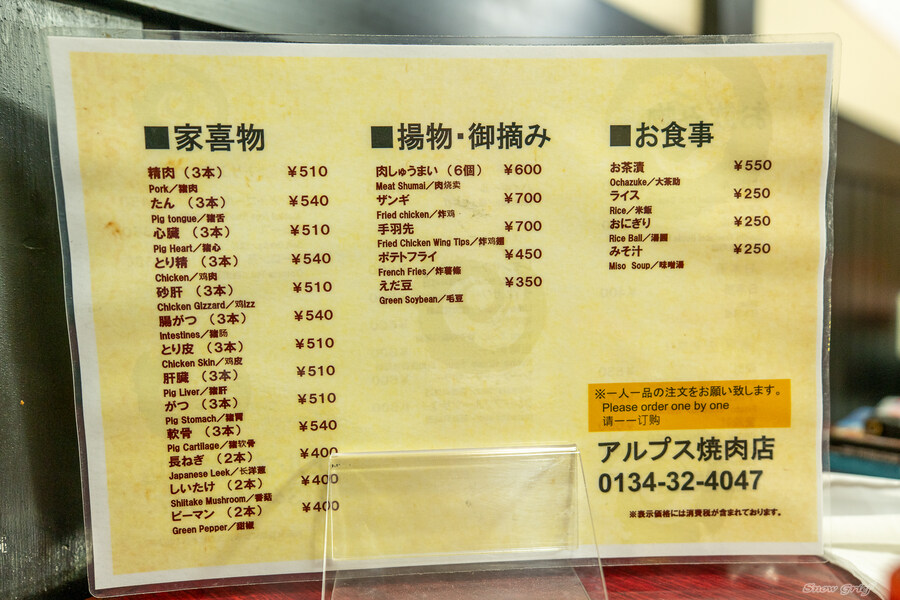 ■家喜物
精肉（3本） ¥510
Pork／猪肉
たん（3本） ¥540
Pig tongue／豬舌
心臓（3本） ¥510
Pig Heart／豬心
とり精（3本） ¥540
Chicken／鸡肉
砂肝（3本） ¥510
Chicken Gizzard／鸡izz
腸がつ（3本） ¥540
Intestines／豬肠
とり皮（3本） ¥510
Chicken Skin／鸡皮
肝臓（3本） ¥510
Pig Liver／豬肝
がつ（3本） ¥510
Pig Stomach／豬胃
軟骨（3本） ¥540
Pig Cartilage／豬软骨
長ねぎ（2本） ¥400
Japanese Leek／长洋蔥
しいたけ（2本） ¥400
Shiitake Mushroom／香菇
ピーマン（2本） ¥400
Green Pepper／甜椒
■揚物・御摘み
肉しゅうまい（6個） ¥600
Meat Shumai／肉烧卖
ザンギ ¥700
Fried chicken／炸鸡
手羽先 ¥700
Fried Chicken Wing Tips／炸鸡翅
ポテトフライ ¥450
French Fries／炸薯條
えだ豆 ¥350
Green Soybean／毛豆
■お食事
お茶漬 ¥550
Ochazuke／大茶助
ライス ¥250
Rice／米飯
おにぎり ¥250
Rice Ball／湯圓
みそ汁 ¥250
Miso Soup／味噌湯
※一人一品の注文をお願い致します。
Please order one by one
请一一订购
アルプス焼肉店
0134-32-4047
※表示価格には消費税が含まれております。